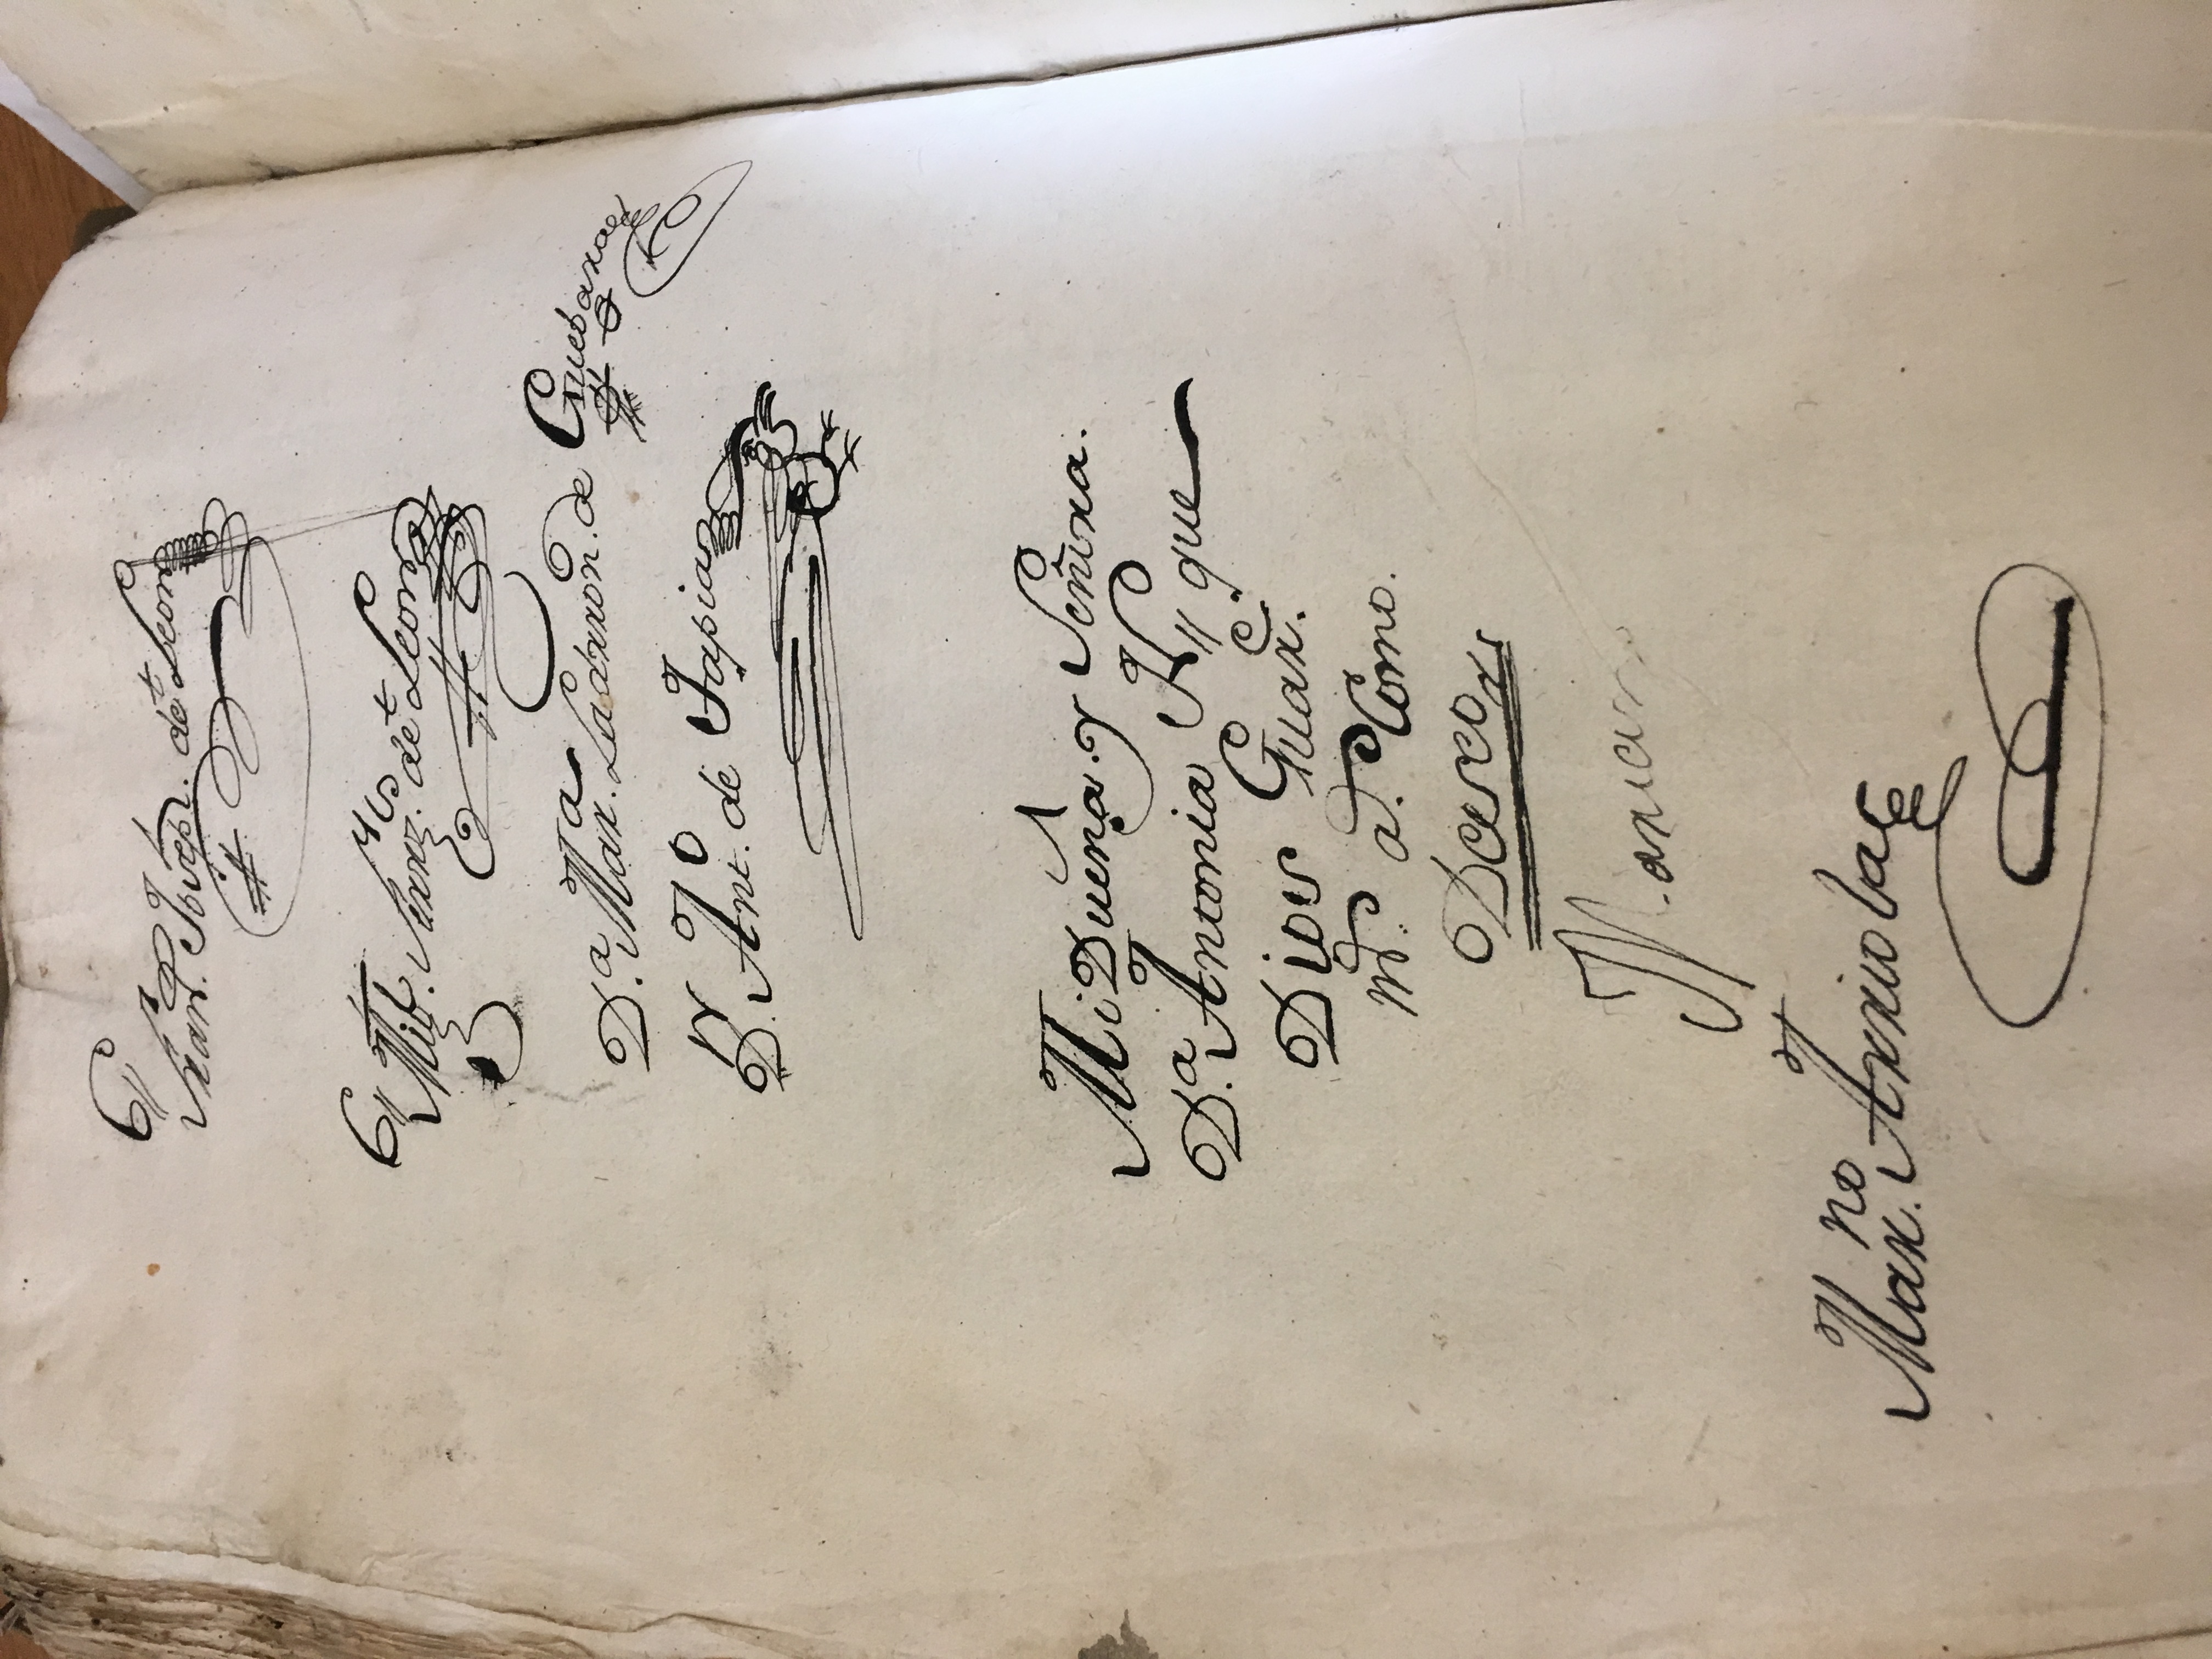 6//
Franco. Joseph. de t Leon
6// Migl. Ferrz. de t Leon
D.a Mar.a Ladrron. de Guebara
D.n Ant.o de Tapia
Mi Dueña. y Señora.
D.a Antonia N// que
Dios Guar.e
m.s a.s Como.
Deseo
Marian
Mar.no Arriola